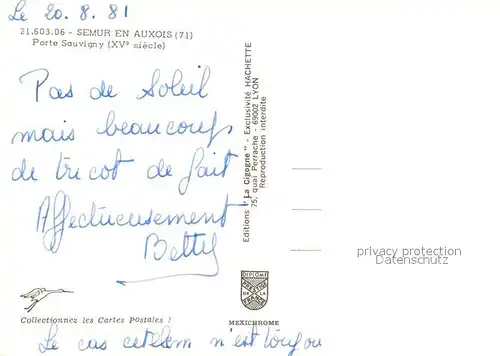 Le 20.8.81
21.603.06 - SEMUR EN AUXOIS (71)
Porte Sauvigny (XVe siècle)
Pas de Soleil
mais beaucoup
de tricot de fait
Affectueusement
Betty
Editions "La Cigogne" - Exclusivité HACHETTE
75, quai Perrache - 69002 LYON
Reproduction interdite
privacy protection
Datenschutz
DIPLOME
PRESTIGE
DE LA
FRANCE
Collectionnez les Cartes Postales !
MEXICHROME
Le cas n'est toujou